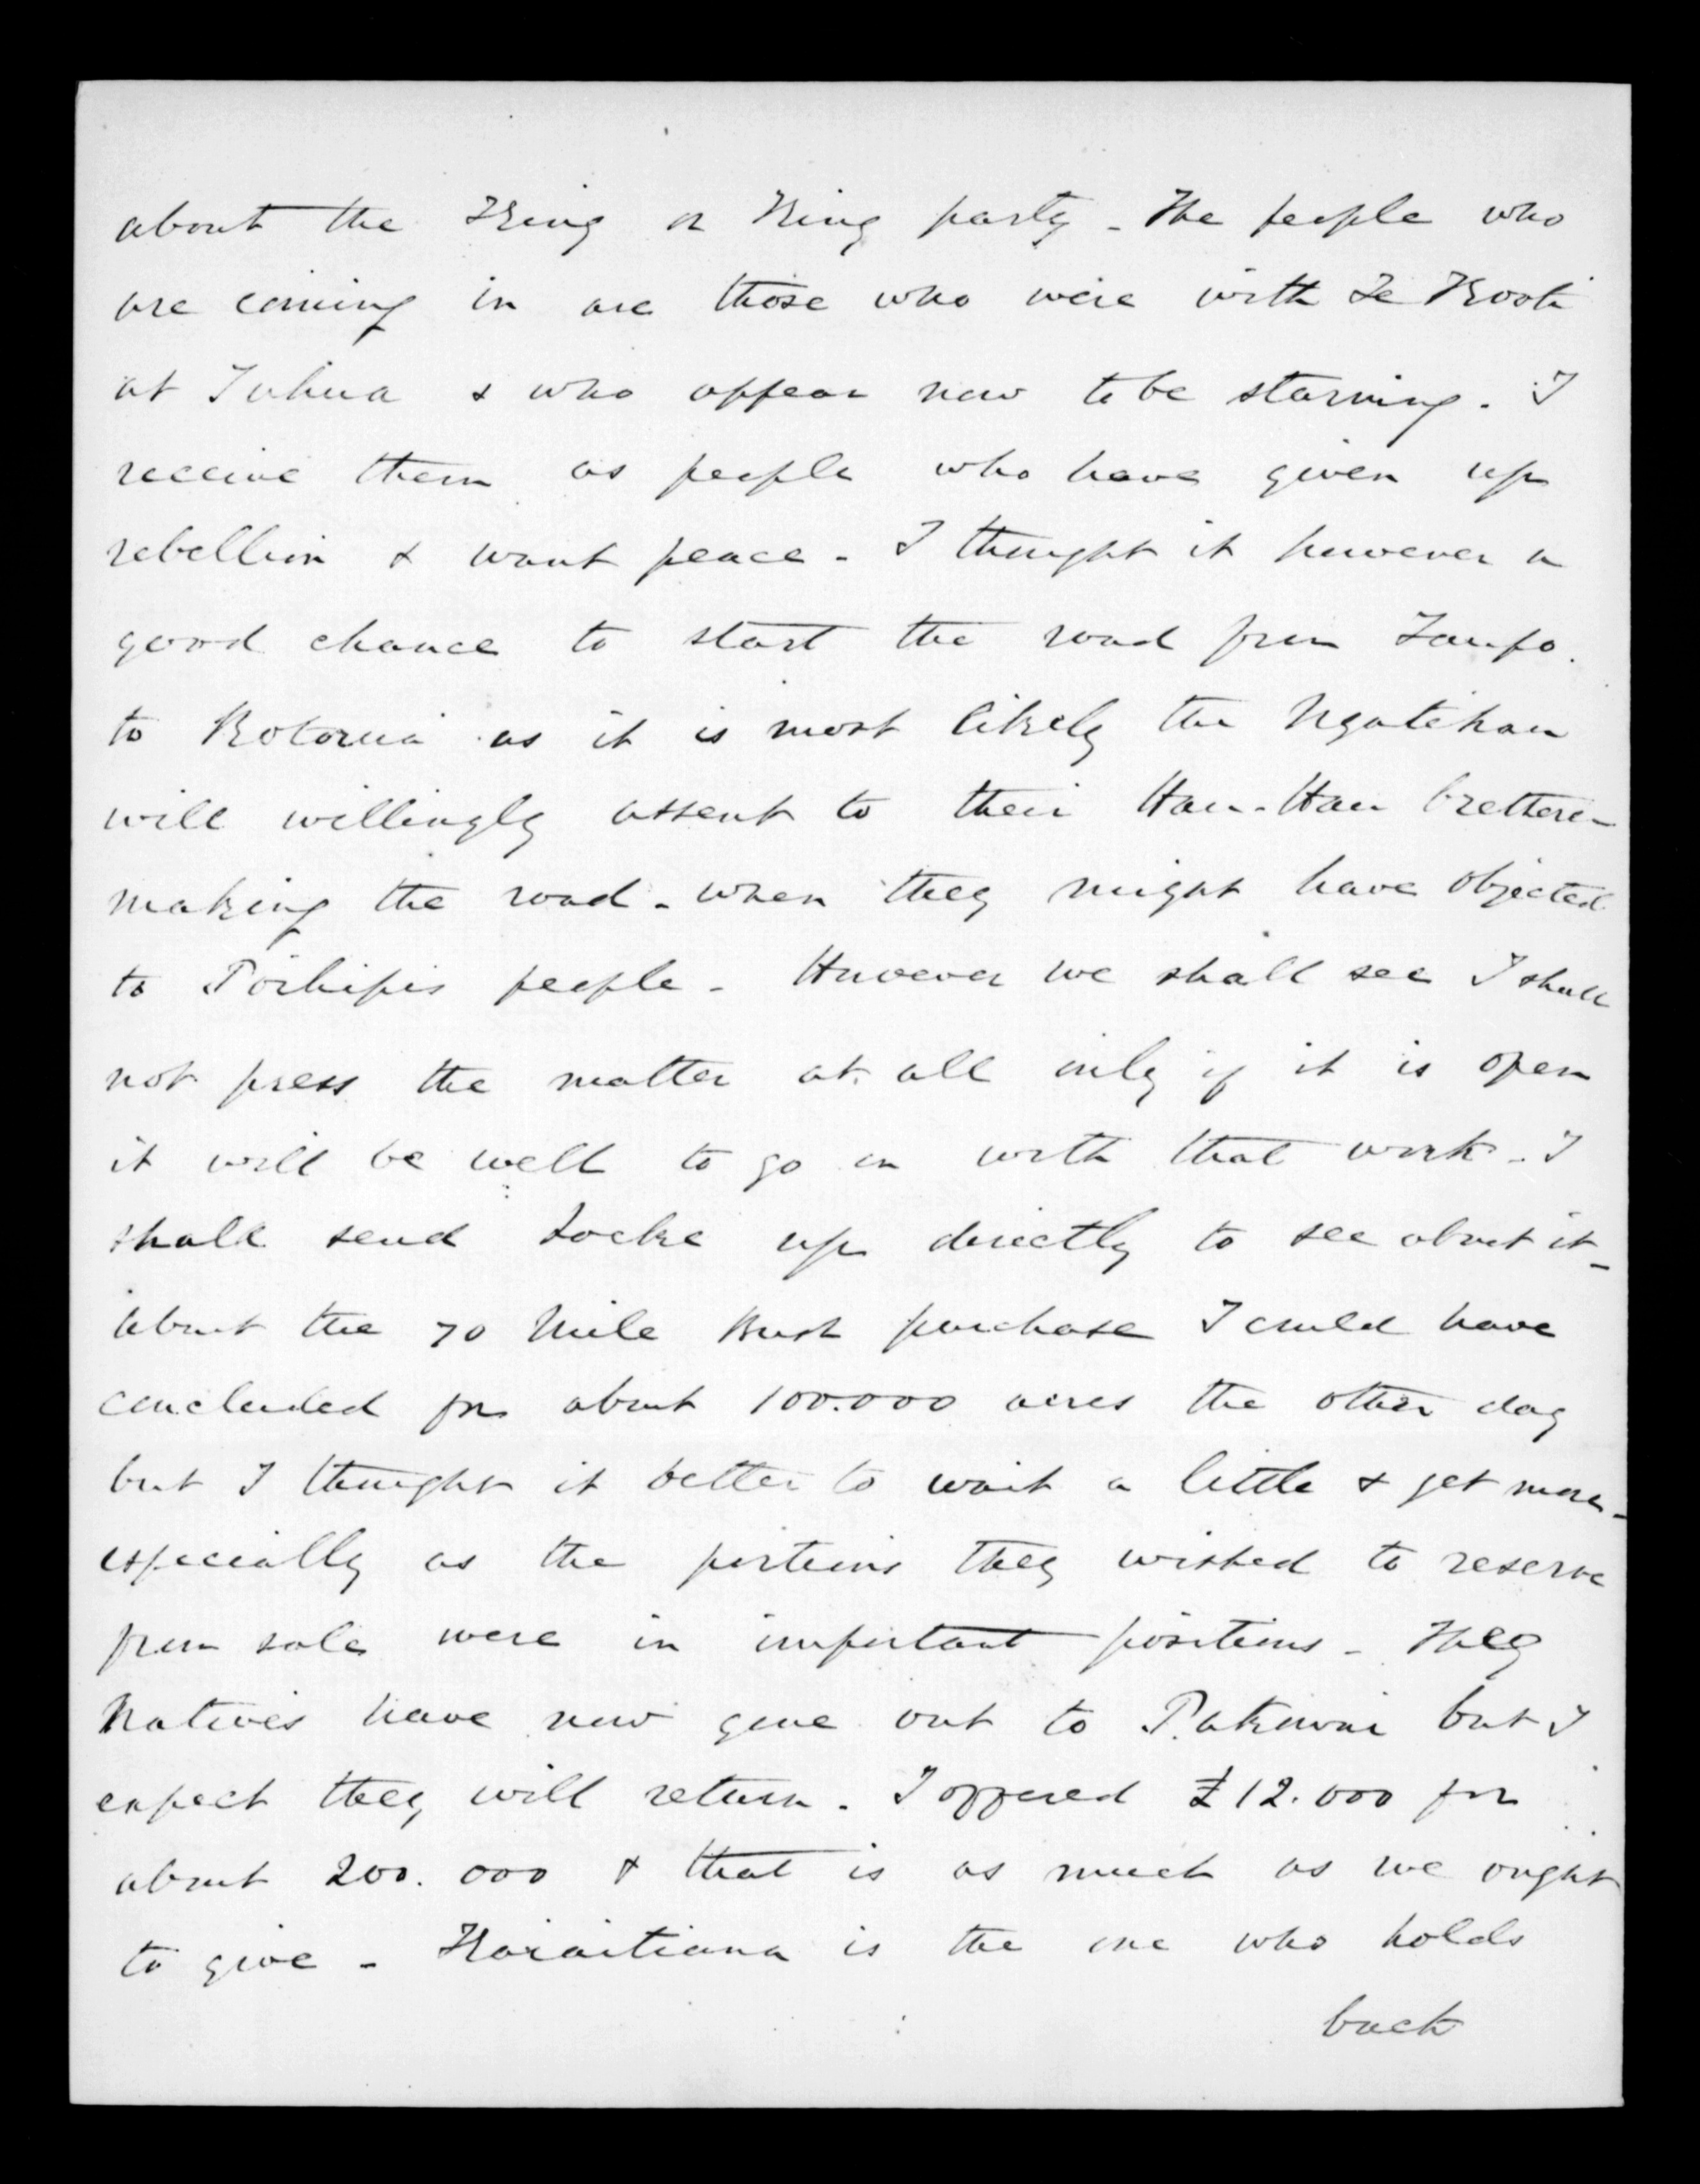 about the King or King party - The people who
are coming in are those who were with Te Kooti
at Tuhua & who appear now to be starving. I
receive them as people who have given up
rebellion & want peace - I thought it however a
good chance to start the road from Taupo.
to Rotorua as it is most likely the Ngatihau
will willingly assent to their Hau-Hau bretheren
making the road - when they might have objected
to Poihipis people - However we shall see I shall
not press the matter at all only if it is open
it will be well to go on with that work - I
shall send Locke up directly to see about it -
about the 70 Mile Bush purchase I could have
concluded for about 100.000 acres the other day
but I thought it better to wait a little & get more -
especially as the portions they wished to reserve
from sale were in important positions - They
Natives have now gone out to Patuwai but I
expect they will return - I offered £12.000 for
about 200.000 & that is as much as we ought
to give - Karaitiana is the one who holds
back